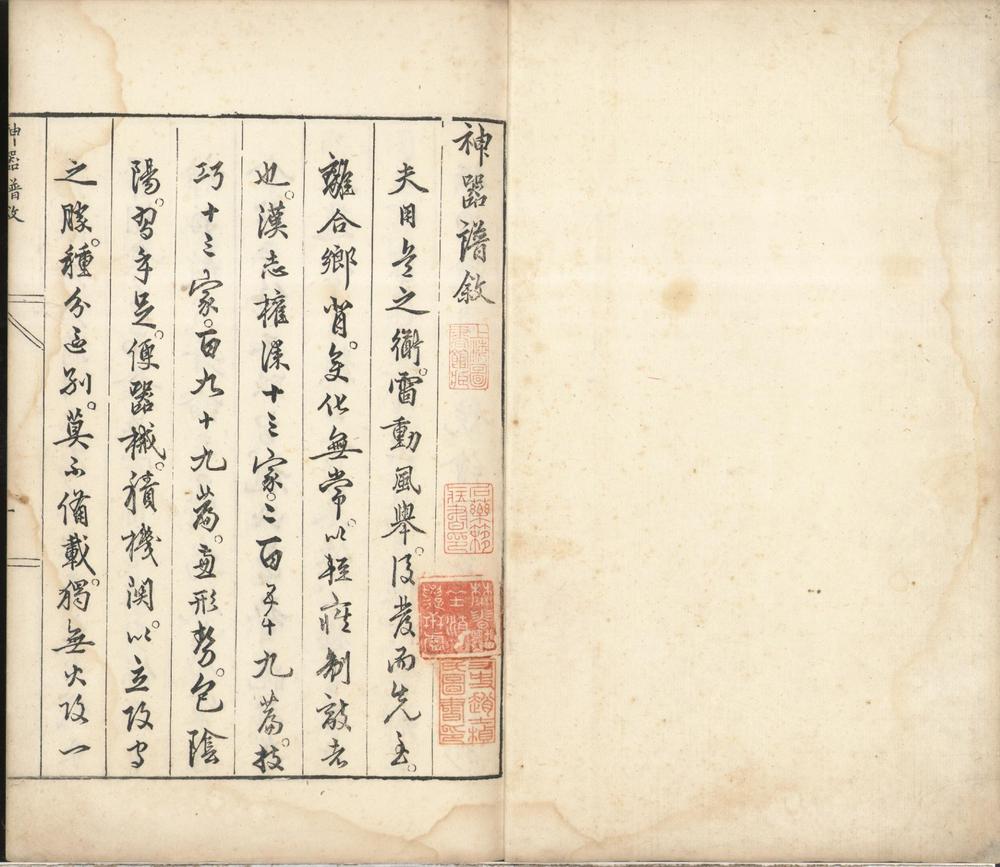 神器譜敘
上海圖書館藏
石藥簃藏書印
夫用兵之術。雷動風舉。後發而先至。
離合鄉背。変化無常。以輕疾制敵者
也。漢志權謀十三家。二百五十九篇。技
巧十三家。百九十九篇。兼形勢。包陰
陽。習手足。便器械。積機関。以立攻守
之勝。種分區別。莫不備載。獨無火攻一
神器譜敘